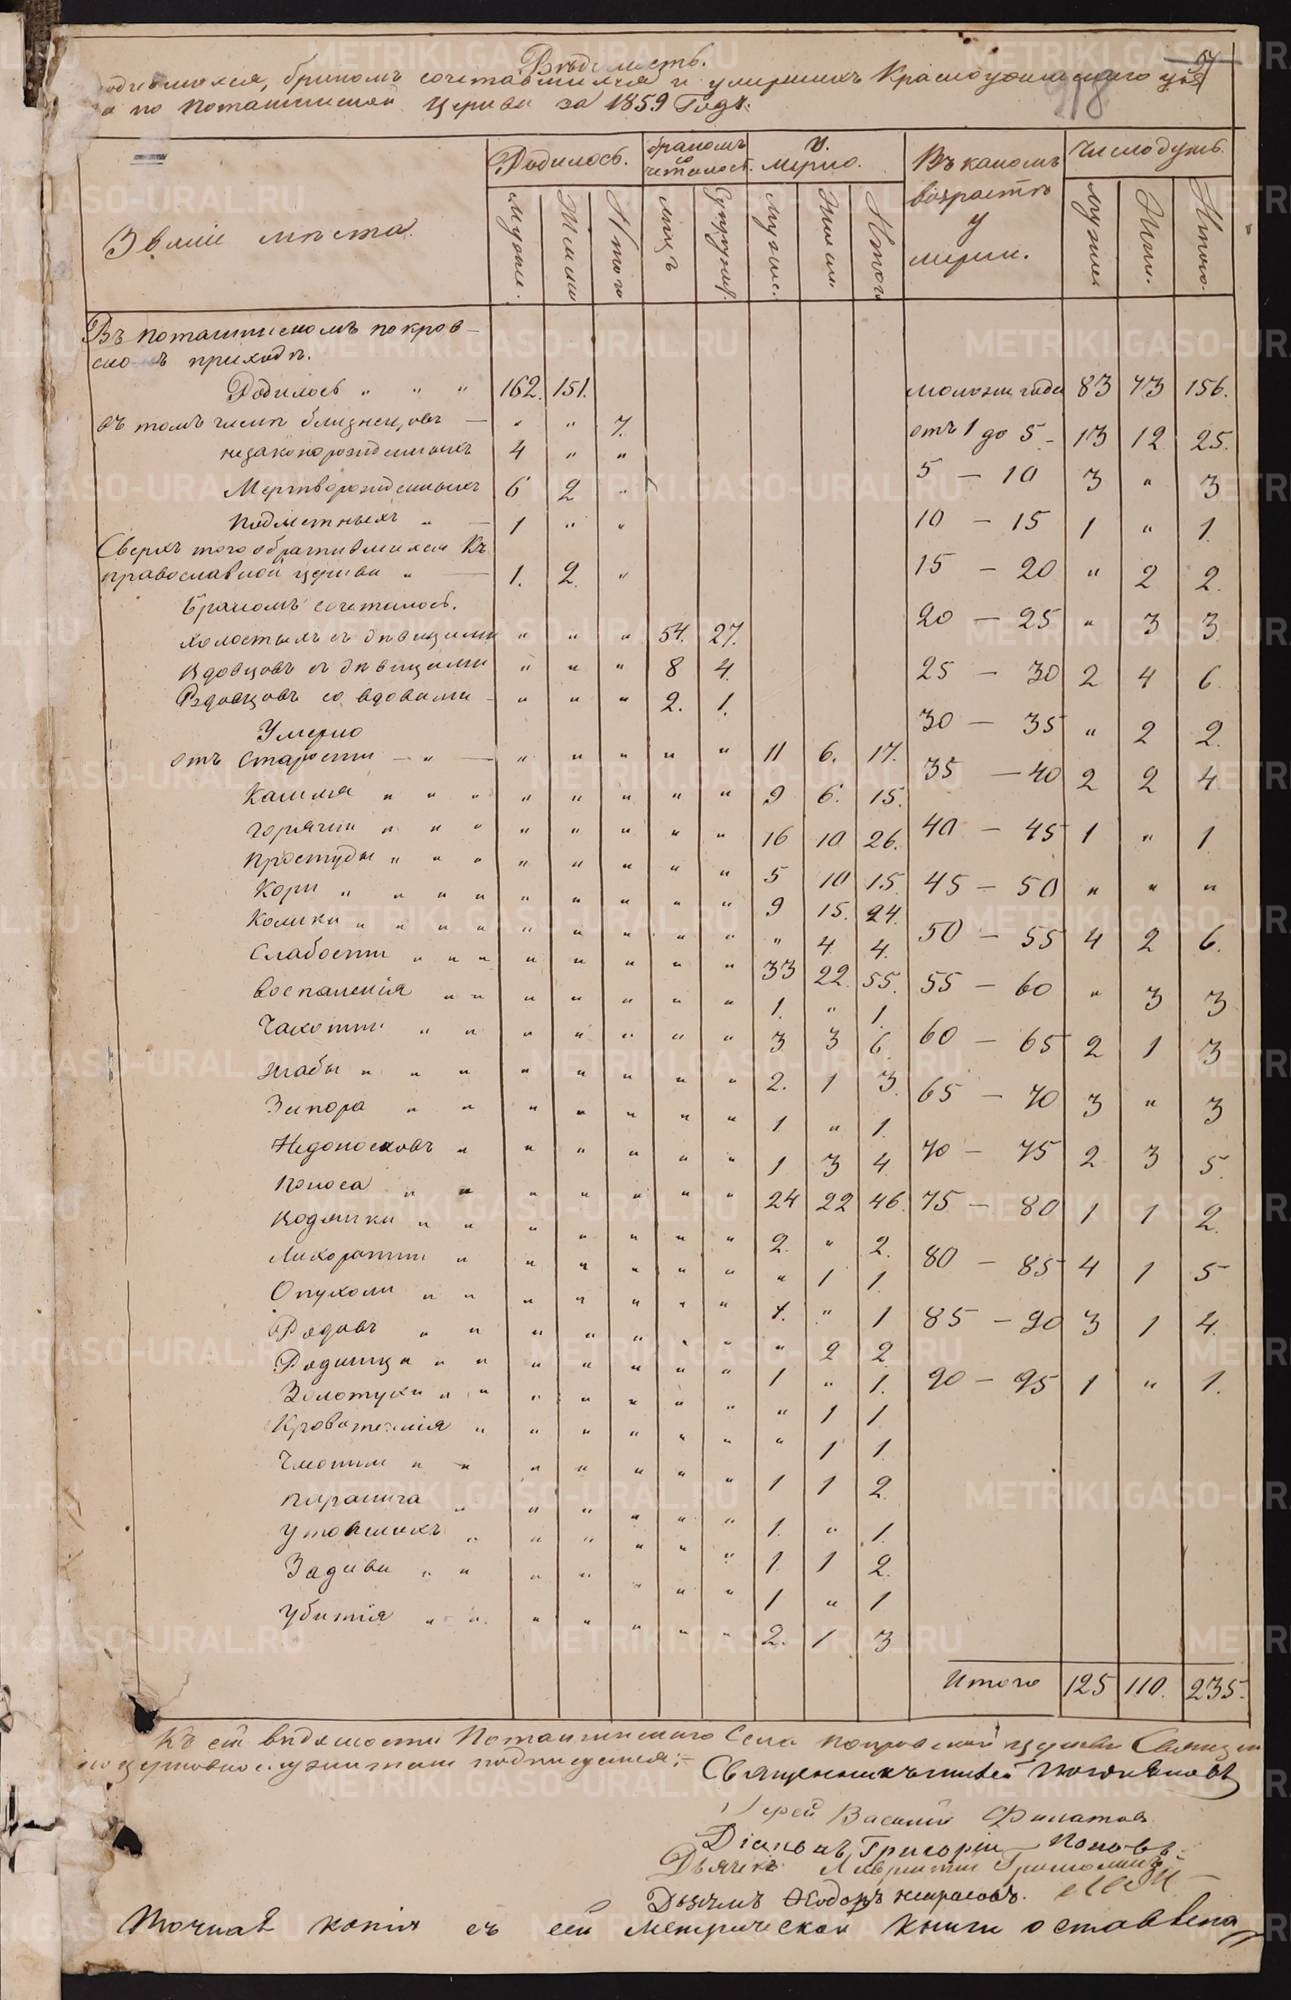 Вѣдомость.
одившихся, бракомъ сочетавшихся и умершихъ Красноуфимскаго уѣз
да по Поташинской Церкви за 1859 Годъ.
57
918
Званіе мѣста.
Родилось.
бракомъ со четалось.
Умерло.
Въ какомъ возрастѣ умерли.
Число душъ.
Мужес. Женск. Итого
лицъ Супружес.
Мужес. Женск. Итого
Мужес. Женс. Итого.
Въ поташинскомъ покров-
скомъ приходѣ.
Родилось " " " 162. 151. моложе года 83 73 156.
въ томъ числѣ близнецовъ — " " 7. отъ 1 до 5 - 13 12 25.
незаконорожденныхъ 4 " " 5 — 10 3 " 3
Мертворожденныхъ 6 2 "
Подметныхъ " — 1 " " 10 — 15 1 " 1.
Сверхъ того обратившихся Къ
православной церкви " — 1. 2. " 15 — 20 " 2 2.
Бракомъ сочеталось.
холостыхъ съ дѣвицами " " " 54. 27. 20 — 25 " 3 3.
Вдовцовъ съ дѣвицами " " " 8 4. 25 — 30 2 4 6.
Вдовцовъ со вдовами - " " " 2. 1. 30 — 35 " 2 2.
Умерло
отъ Старости — " — " " " " " 11 6. 17. 35 — 40 2 2 4
Кашля " " " " " " " " 9 6. 15.
горячки " " " " " " " " 16 10 26. 40 — 45 1 " 1.
Простуды " " " " " " " " 5 10 15. 45 — 50 " " "
Кори " " " " " " " " " 9 15. 24.
Колики " " " " " " " " " " 4. 4. 50 — 55 4 2 6.
Слабости " " " " " " " " 33 22. 55. 55 — 60 " 3 3
Воспаленія " " " " " " " 1. " 1.
Чахотки " " " " " " " 3 3 6. 60 — 65 2 1 3
Жабы " " " " " " " " 2. 1 3. 65 — 70 3 " 3
Запора " " " " " " " 1 " 1.
Недоносковъ " " " " " " 1 3 4 70 — 75 2 3 5.
Поноса " " " " " " " 24 22 46. 75 — 80 1 1 2.
Водянки " " " " " " " 2. " 2.
Лихорадки " " " " " " " 1 1. 80 — 85 4 1 5
Опухоли " " " " " " " 1. " 1 85 — 90 3 1 4.
Родовъ " " " " " " " " 2 2.
Родимца " " " " " " " 1 " 1. 90 — 95 1 " 1.
Золотухи " " " " " " " " 1 1
Кровотеченія " " " " " " " 1 1.
" " " " " " " 1 1 2.
паралича " " " " " " 1. " 1.
Утопшихъ " " " " " " 1. 1 2.
" " " " " " " 1 " 1
Убитія " " " " " " " 2. 1 3
Итого 125 110. 235.
Къ сей вѣдомости Поташинскаго Села покровской церкви Священ
но церковнослужители подписуемся:-
Священникъ
Іерей Василій Филатовъ
Діаконъ Григорій Поповъ.
Дьячекъ
Дьячекъ Ѳеодоръ Некрасовъ.
Точная копія съ сей Метрической книги оставлена